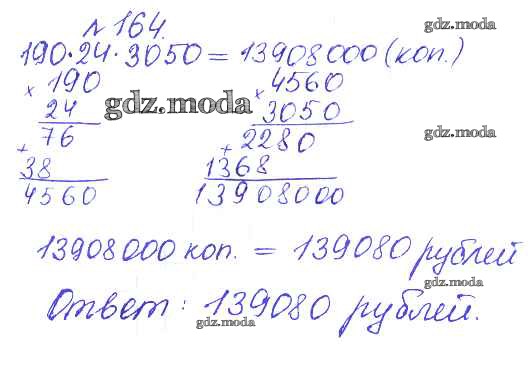 № 164.
gdz.moda
190·24·3050=13908000(коп.)
× 190 × 4560
24 gdz.moda 3050
76 2280 gdz.moda
+ +
38 1368
4560 13908000
13908000 коп. = 139080 рублей
gdz.moda
Ответ: 139080 рублей.
gdz.moda gdz.moda